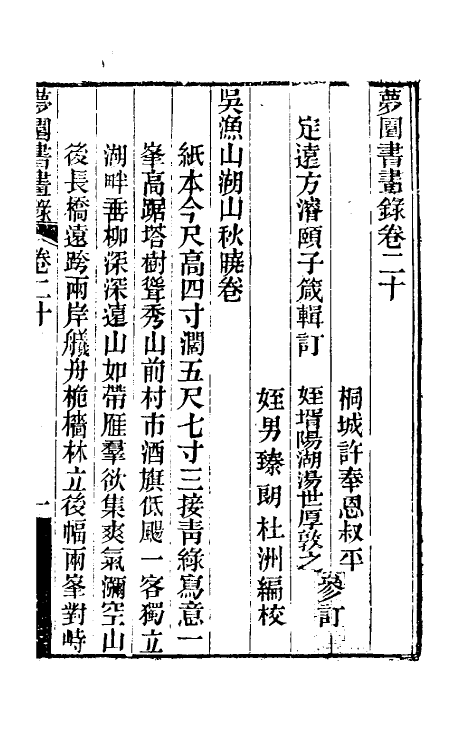 夢園書畫錄卷二十
桐城許奉恩叔平
定遠方濬頤子箴輯訂
姪壻陽湖湯世厚敦之
參訂
姪男臻朗杜洲編校
吳漁山湖山秋曉卷
紙本今尺高四寸濶五尺七寸三接靑綠寫意一
峯高踞塔樹聳秀山前村市酒旗低颺一客獨立
湖畔垂柳深深遠山如帶雁羣欲集爽氣瀰空山
後長橋遠跨兩岸艤舟桅檣林立後幅兩峯對峙
夢園書畫錄
卷二十
一